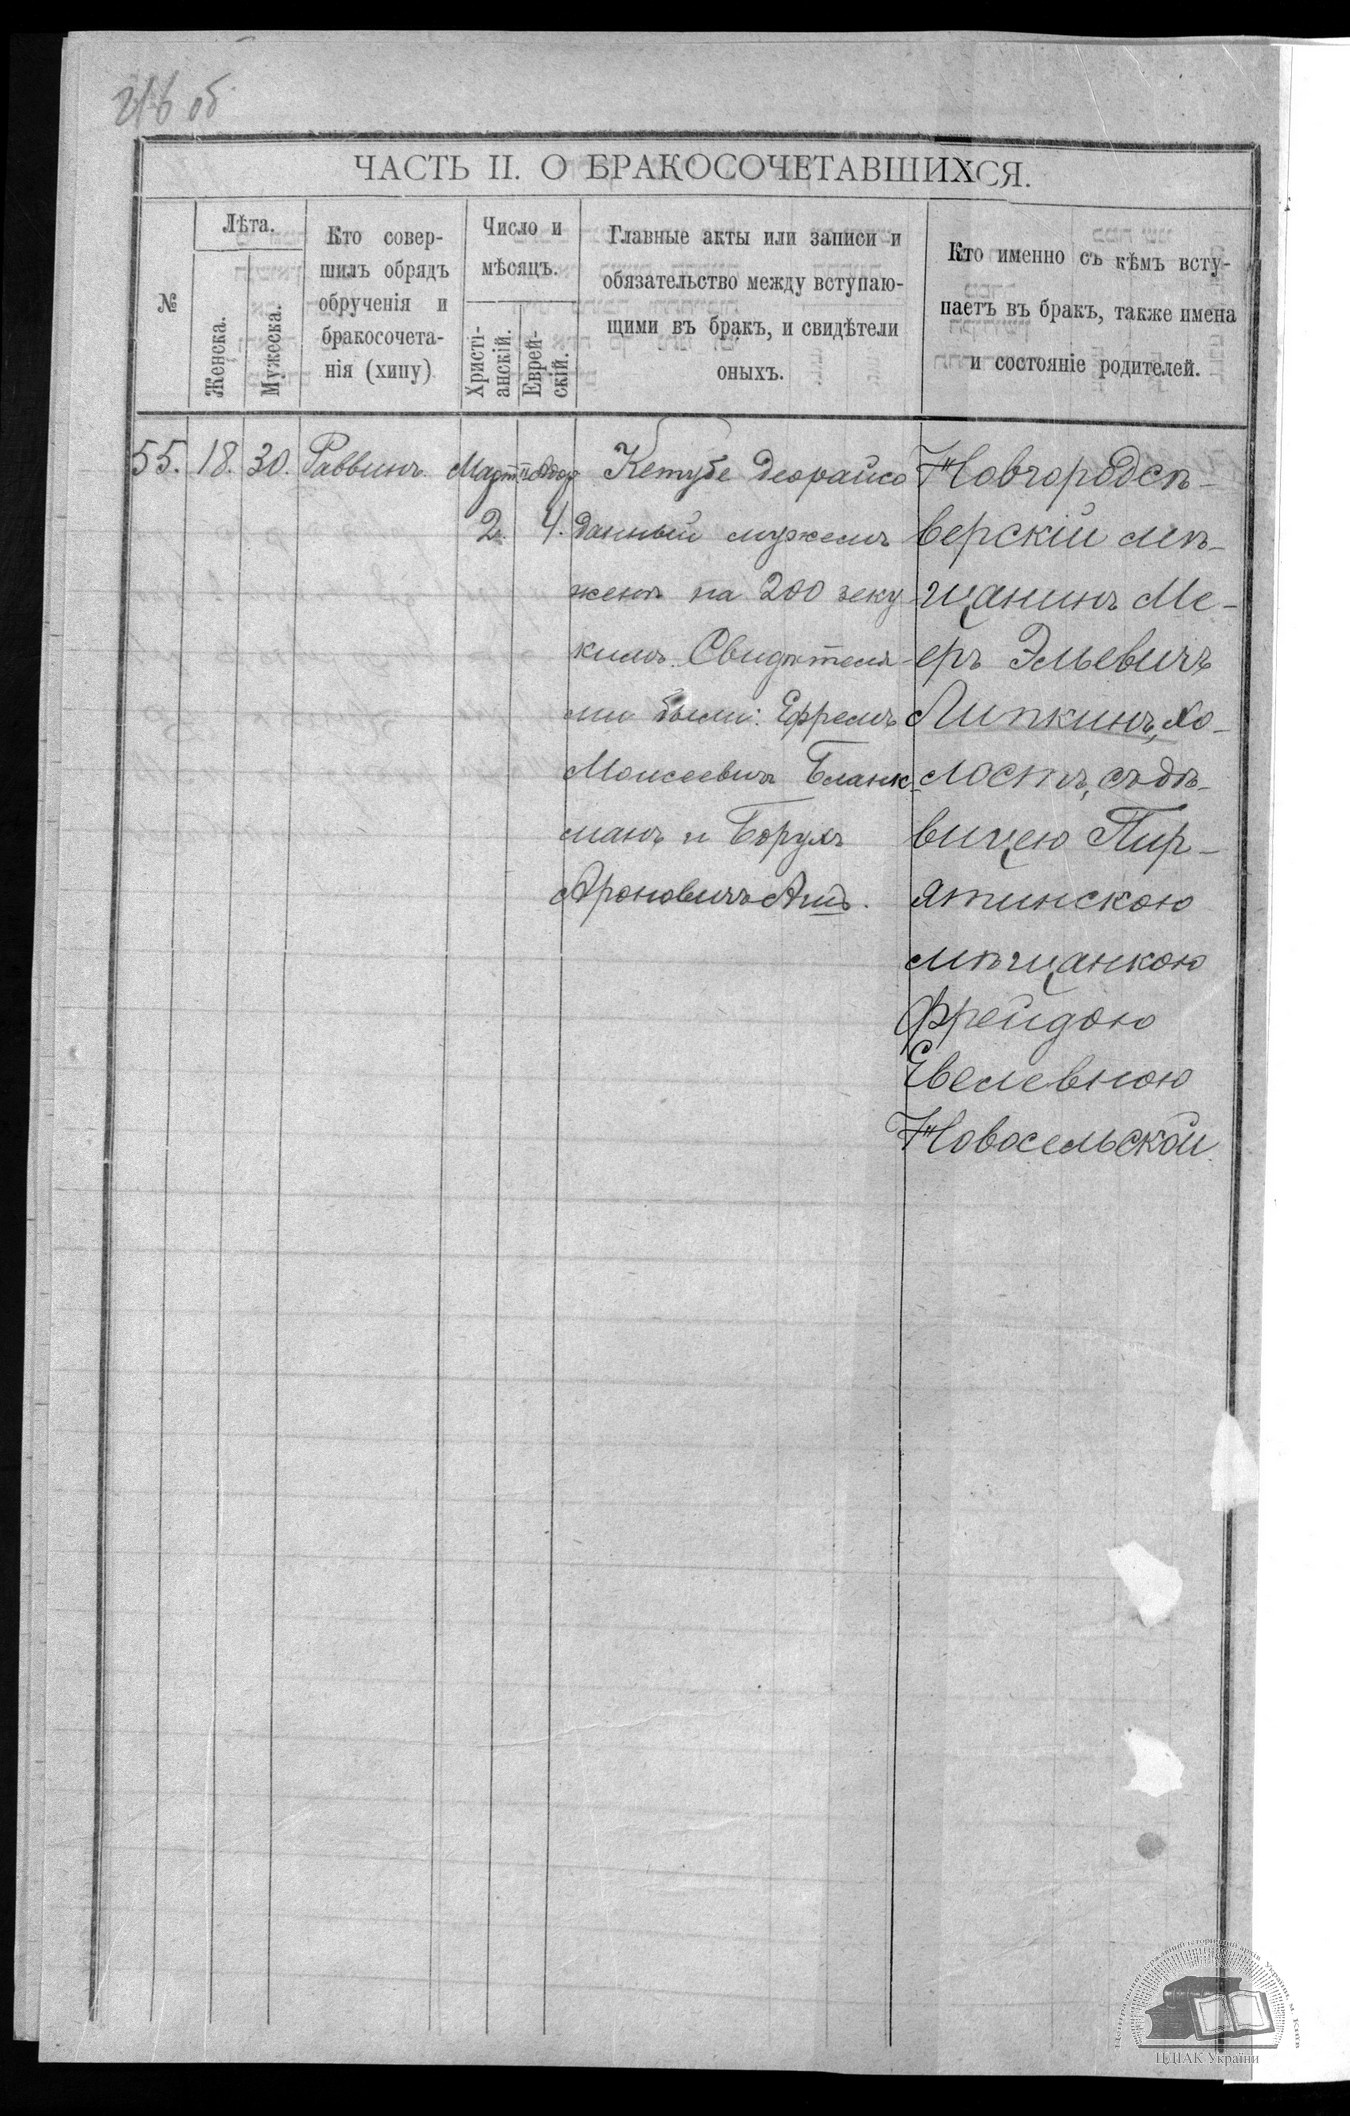 216 об
ЧАСТЬ II. О БРАКОСОЧЕТАВШИХСЯ.
№
Лѣта.
Женска.
Мужеска.
Кто совер-
шилъ обрядъ
обрученія и
бракосочета-
нія (хипу)
Число и
мѣсяцъ.
Христі-
анскій.
Еврей-
скій.
Главные акты или записи и
обязательство между вступаю-
щими въ бракъ, и свидѣтели
оныхъ.
Кто именно съ кѣмъ всту-
паетъ въ бракъ, также имена
и состояніе родителей.
55.
18.
30.
Раввинъ
Мартъ
2.
Одор
4.
Кетубе Деорайсо
данный мужемъ
женѣ на 200 зеку
кимъ. Свидѣтеля-
ми были: Ефремъ
Моисеевичъ Бланк-
манъ и Борухъ
Ароновичъ Ашъ.
Новгородсѣ-
верскій мѣ-
щанинъ Ме-
еръ Эльевичъ
Липкинъ, хо-
лостъ, съ дѣ-
вицею Пир-
ятинскою
мѣщанкою
Фрейдою
Евелевною
Новосельской.
Центральний державний історичний архів України, м. Київ
ЦДІАК України